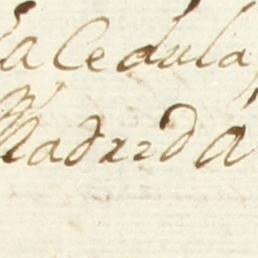 la Cedula
Madrid á